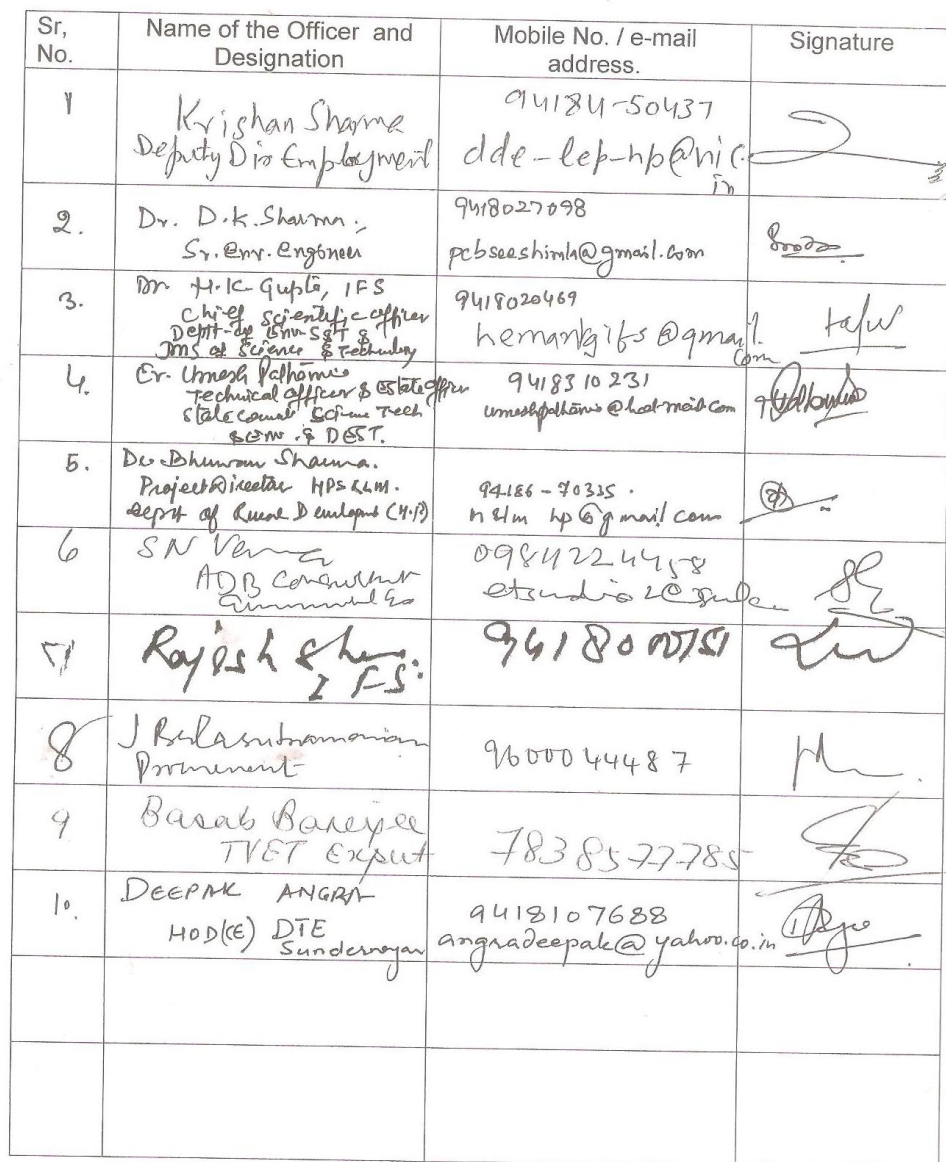 Sr, No.
Name of the Officer and Designation
Mobile No. / e-mail address.
Signature
1
Krishan Sharma
Deputy Dir Employment
94184-50437
dde-lep-hp@nic.
in
2.
Dr. D.K. Sharma
Sr. Env. Engineer
9418027098
pcbseeshimla@gmail.com
3.
Dr. H.K. Gupta, IFS
Chief Scientific officer
Deptt. of Env. S&T &
JMS of Science & Technology
9418020469
@gmail.
com
4.
Er. Umesh Pathania
Technical officer & Estate officer
State Council Science Tech
& Env. & DEST.
9418310231
umeshpathania@hotmail.com
5.
Bhuwan Sharma.
Project Director HPSRLM.
Deptt of Rural Development (H.P)
94186-70335.
hp@gmail com
6
SN Verma
ADB Consultant
7
Rajesh
IFS.
8
J Balasubramanian
9600044487
9
Basab Banerjee
TVET Expert
7838577785
10.
DEEPAK ANGRA
HOD(CE) DTE
Sundernagar
9418107688
angradeepak@yahoo.co.in